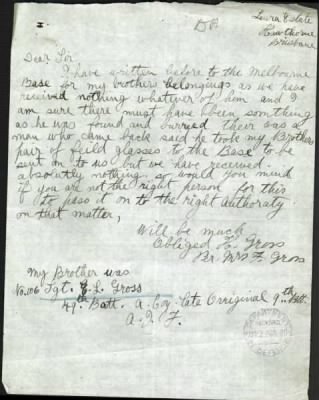 Lovra Estate
Hawthorne
Brisbane
Dear Sir
I have written before to the Melbourne
Base for my brothers belongings as we have
received nothing whatever of him and I
am sure there must have been somthing
as he was found and burried their was a
man who came back said he took my Brothers
pair of field glasses to the Base to be
sent on to us but we have received
absolutely nothing so would you mind
if you are not the right person for this
to pass it on to the right Authoraty
on that matter,
Will be much
Obliged
Gross
Mrs F. Gross
My Brother was
No. 106 Sgt. E. L. Gross
49th Batt. A. Coy. late Orriginal 9th Batt.
A. I. F.